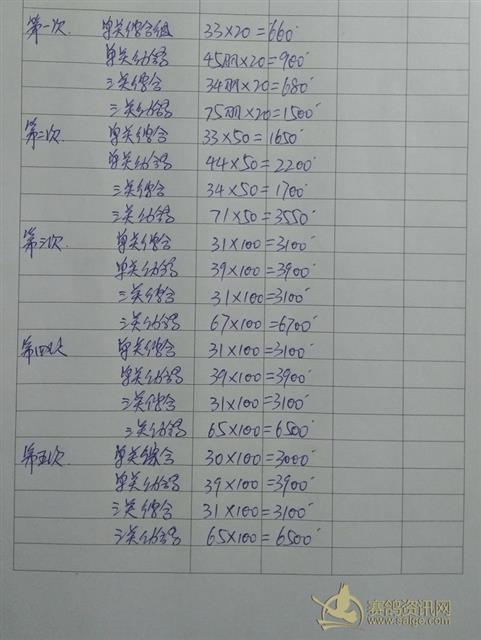 第一次. 单关综合组 33×20=660
单关幼鸽 45羽×20=900
三关综合 34羽×20=680
三关幼鸽 75羽×20=1500
第二次. 单关综合 33×50=1650
单关幼鸽 44×50=2200
三关综合 34×50=1700
三关幼鸽 71×50=3550
第三次. 单关综合 31×100=3100
单关幼鸽 39×100=3900
三关综合 31×100=3100
三关幼鸽 67×100=6700
第四次 单关综合 31×100=3100
单关幼鸽 39×100=3900
三关综合 31×100=3100
三关幼鸽 65×100=6500
第五次. 单关综合 30×100=3000
单关幼鸽 39×100=3900
三关综合 31×100=3100
三关幼鸽 65×100=6500
赛鸽资讯网
www.saige.com